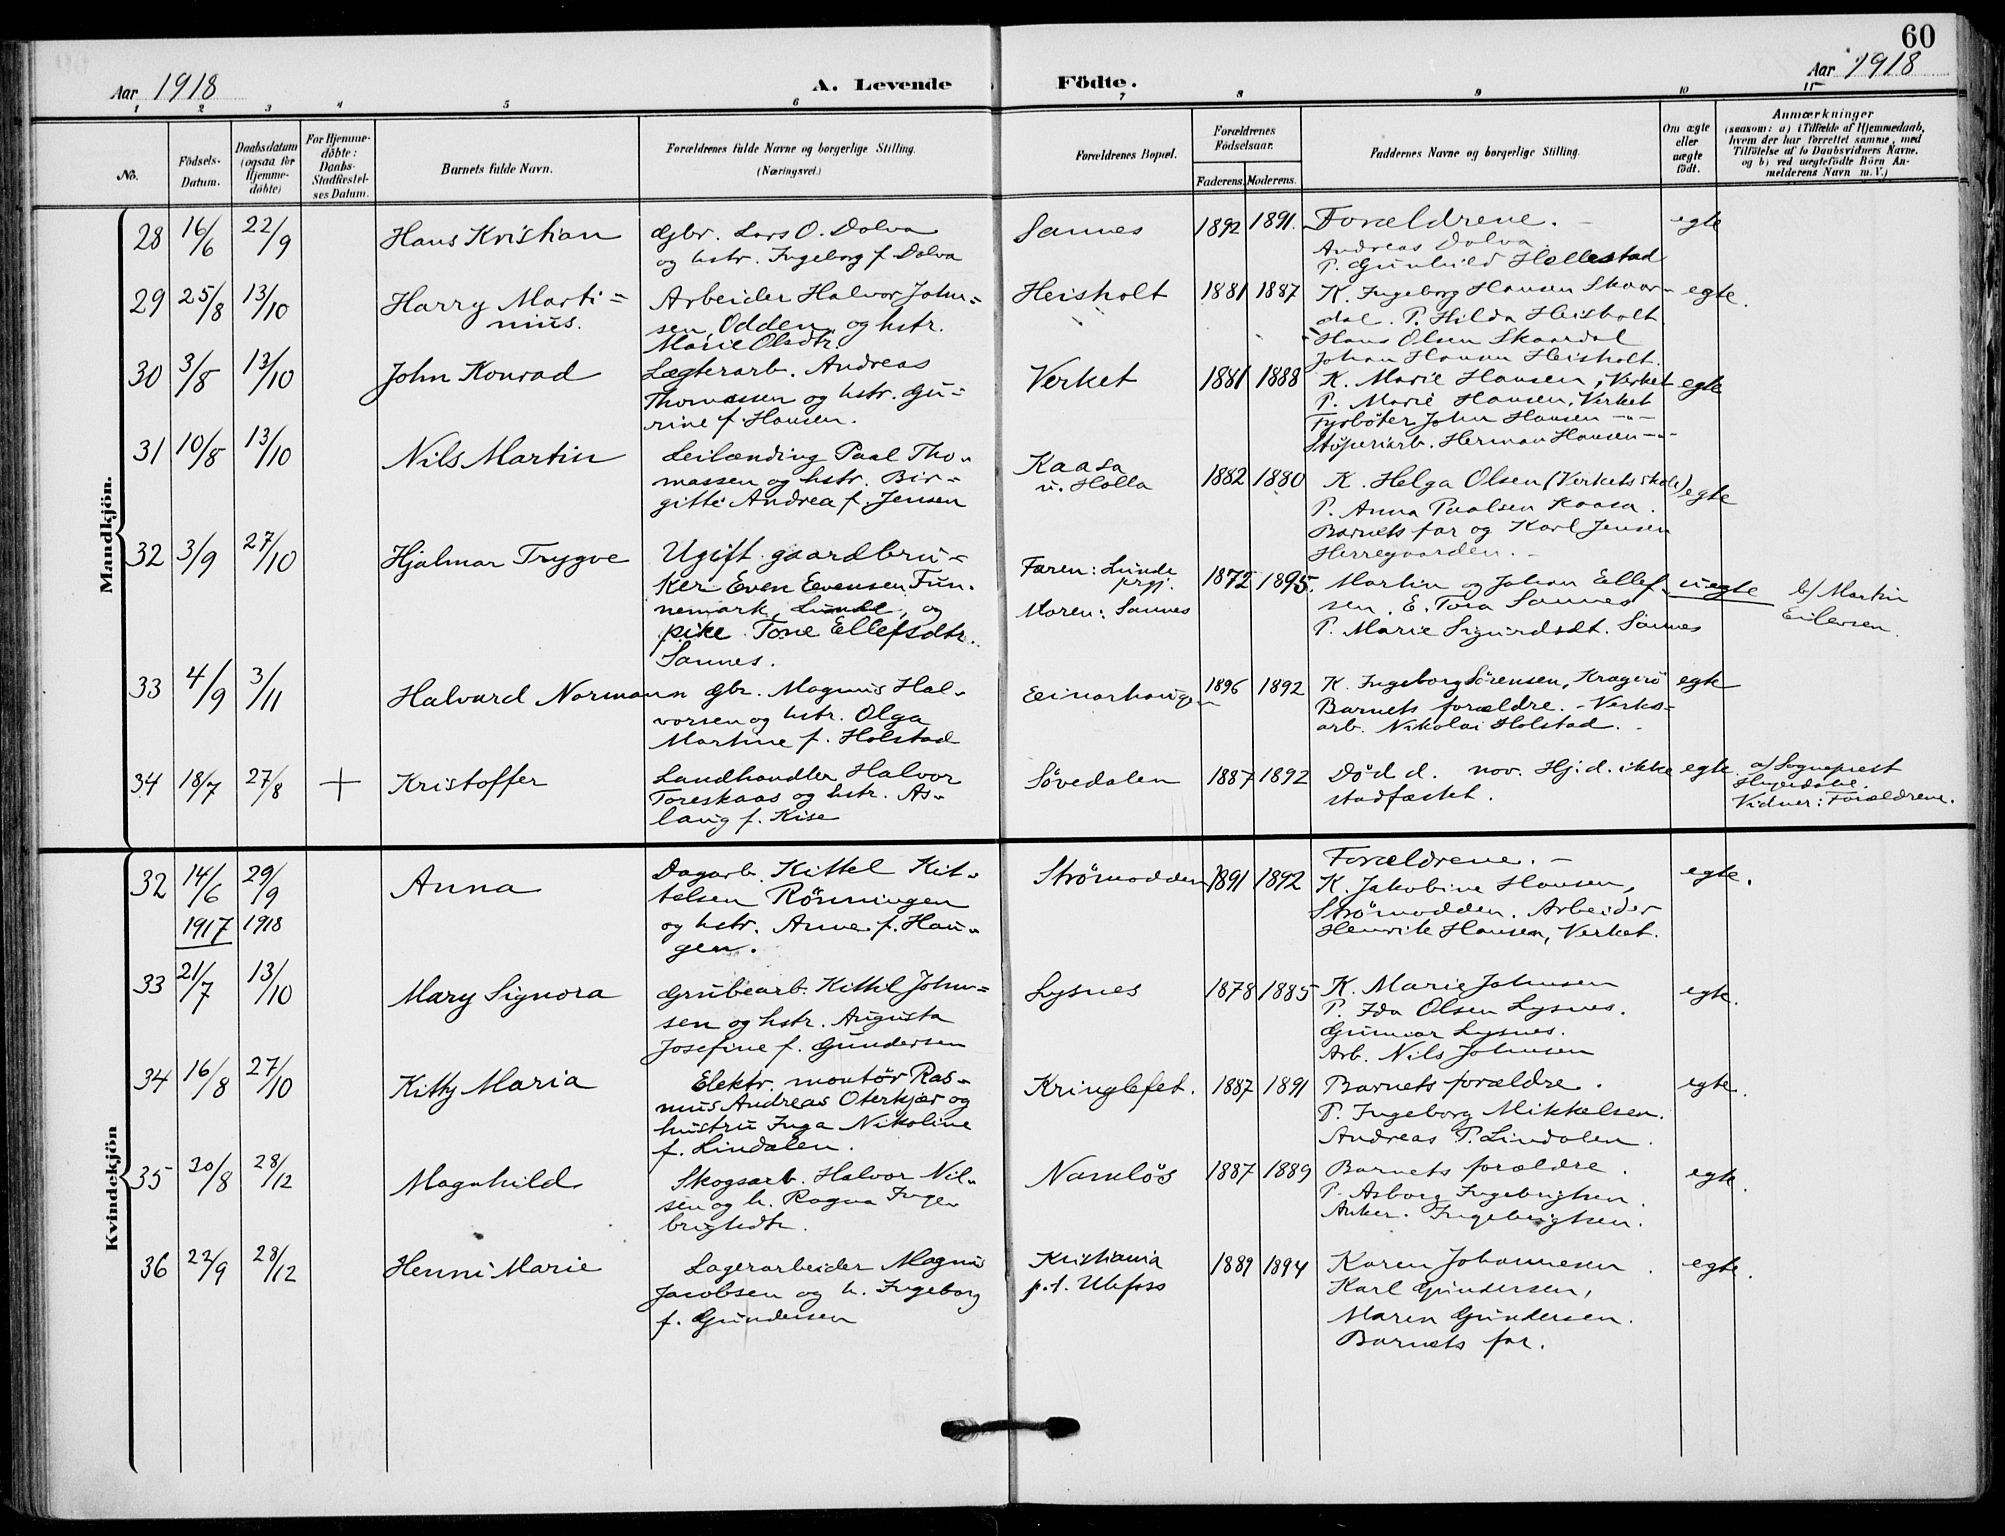 60
Aar 1918 A. Levende Födte. Aar 1918
1 2 3 4 5 6 7 8 9 10 11
No.
Födsels-Datum.
Daabsdatum (ogsaa for Hjemmedöbte)
For Hjemmedöbte: Daabs-Stadfæstelses Datum.
Barnets fulde Navn.
Forældrenes fulde Navne og borgerlige Stilling.
(Næringsvei.)
Forældrenes Bopæl.
Forældrenes Födselsaar.
Faderens. Moderens.
Faddernes Navne og borgerlige Stilling.
Om ægte eller uægte födt.
Anmærkninger
(saasom: a) i Tilfælde af Hjemmedaab, hvem der har forrettet samme, med Tilföielse af to Daabsvidners Navne. og b) ved uægtefödte Börn Anmelderens Navn m. V.)
Mandkjön.
28 16/6 22/9 Hans Kristian
Gbr. Lars O. Dolva
og hstr. Ingeborg f. Dolva
Sannes 1892 1891.
Forældrene. -
Andreas Dolva
P. Gunhild Hollestad
egte
29 25/8 13/10 Harry Marti=
nius.
Arbeider Halvor John-
sen Odden og hstr.
Marie Olsdtr.
Heisholt 1881 1887
K. Ingeborg Hansen Skaar-
dal. P. Hilda Heisholt
Hans Olsen Skaardal
Johan Hansen Heisholt.
egte.
30 3/8 13/10 John Konrad
Lægterarb. Andreas
Thomassen og hstr. Gu-
rine f. Hansen.
Verket 1881 1888
K. Marie Hansen, Verket
P. Marie Hansen, Verket
Fyrböter John Hansen -"-
Støperiarb. Herman Hansen -"-
egte
31 10/8 13/10 Nils Martin
Leilænding Paal Tho-
massen og hstr. Bir-
gitte Andrea f. Jensen
Kaasa
u. Holla
1882 1880
K. Helga Olsen (Verkets skole)
P. Anna Paalsen Kaasa.
Barnets far og Karl Jensen
Herregaarden. -
egte
32 3/9 27/10 Hjalmar Trygve
Ugift gaardbru-
ker Even Evensen Fun-
nemark, Lunde, og
pike Tone Ellefsdtr.
Sannes.
Faren: Lunde
prgj.
Moren: Sannes
1872 1895.
Martin og Johan Ellef-
sen. E. Tora Sannes
P. Marie Sigurdsdt. Sannes
uegte
b/ Martin
Eilevsen.
33 4/9 3/11 Halvard Normann
Gbr. Magnus Hal-
vorsen og hstr. Olga
Martine f. Holstad
Einarhaugen
1896 1892
K. Ingeborg Sörensen, Kragerö
Barnets forældre. - Verks-
arb. Nikolai Holstad. -
egte
34 18/7 27/8 + Kristoffer
Landhandler Halvor
Toreskaas og hstr. As-
laug f. Kise
Søvedalen 1887 1892
Død d. nov. Hj.d. ikke
stadfæstet.
egte.
a/ Sogneprest
Vidner: Forældrene.
Kvindekjön
32 14/6 1917 29/9 1918 Anna
Dagarb. Kittel Kit-
telsen Rönningen
og hstr. Anne f. Hau-
gen.
Strömodden 1891 1892
Forældrene. -
K. Jakobine Hansen,
Strömodden. Arbeider
Henrik Hansen, Verket.
egte.
33 21/7 13/10 Mary Signora
Grubearb. Kittil John-
sen og hstr. Augusta
Josefine f. Gundersen
Lysnes 1878 1885
K. Marie Johnsen
P. Ida Olsen Lysnes.
Gunnar Lysnes.
Arb. Nils Johnsen
egte.
34 16/8 27/10 Kitty Maria
Elektr. montör Ras-
mus Andreas Oterkjær og
hustru Inga Nikoline
f. Lindalen.
Kringlefet. 1887 1891
Barnets forældre.
P. Ingeborg Mikkelsen.
Andreas P. Lindalen.
egte.
35 30/8 28/12 Magnhild
Skogsarb. Halvor Nil-
sen og h. Ragna Inge-
brigtsdtr.
Namløs 1887 1889
Barnets forældre.
P. Asborg Ingebrigtsen.
Anker. Ingebrigtsen.
egte.
36 22/9 28/12 Henni Marie
Lagerarbeider Magnus
Jacobsen og h. Ingeborg
f. Gundersen
Kristiania
p.t. Ulefoss
1889 1894
Karen Johannesen.
Karl Gundersen,
Maren Gundersen.
Barnets far.
egte.